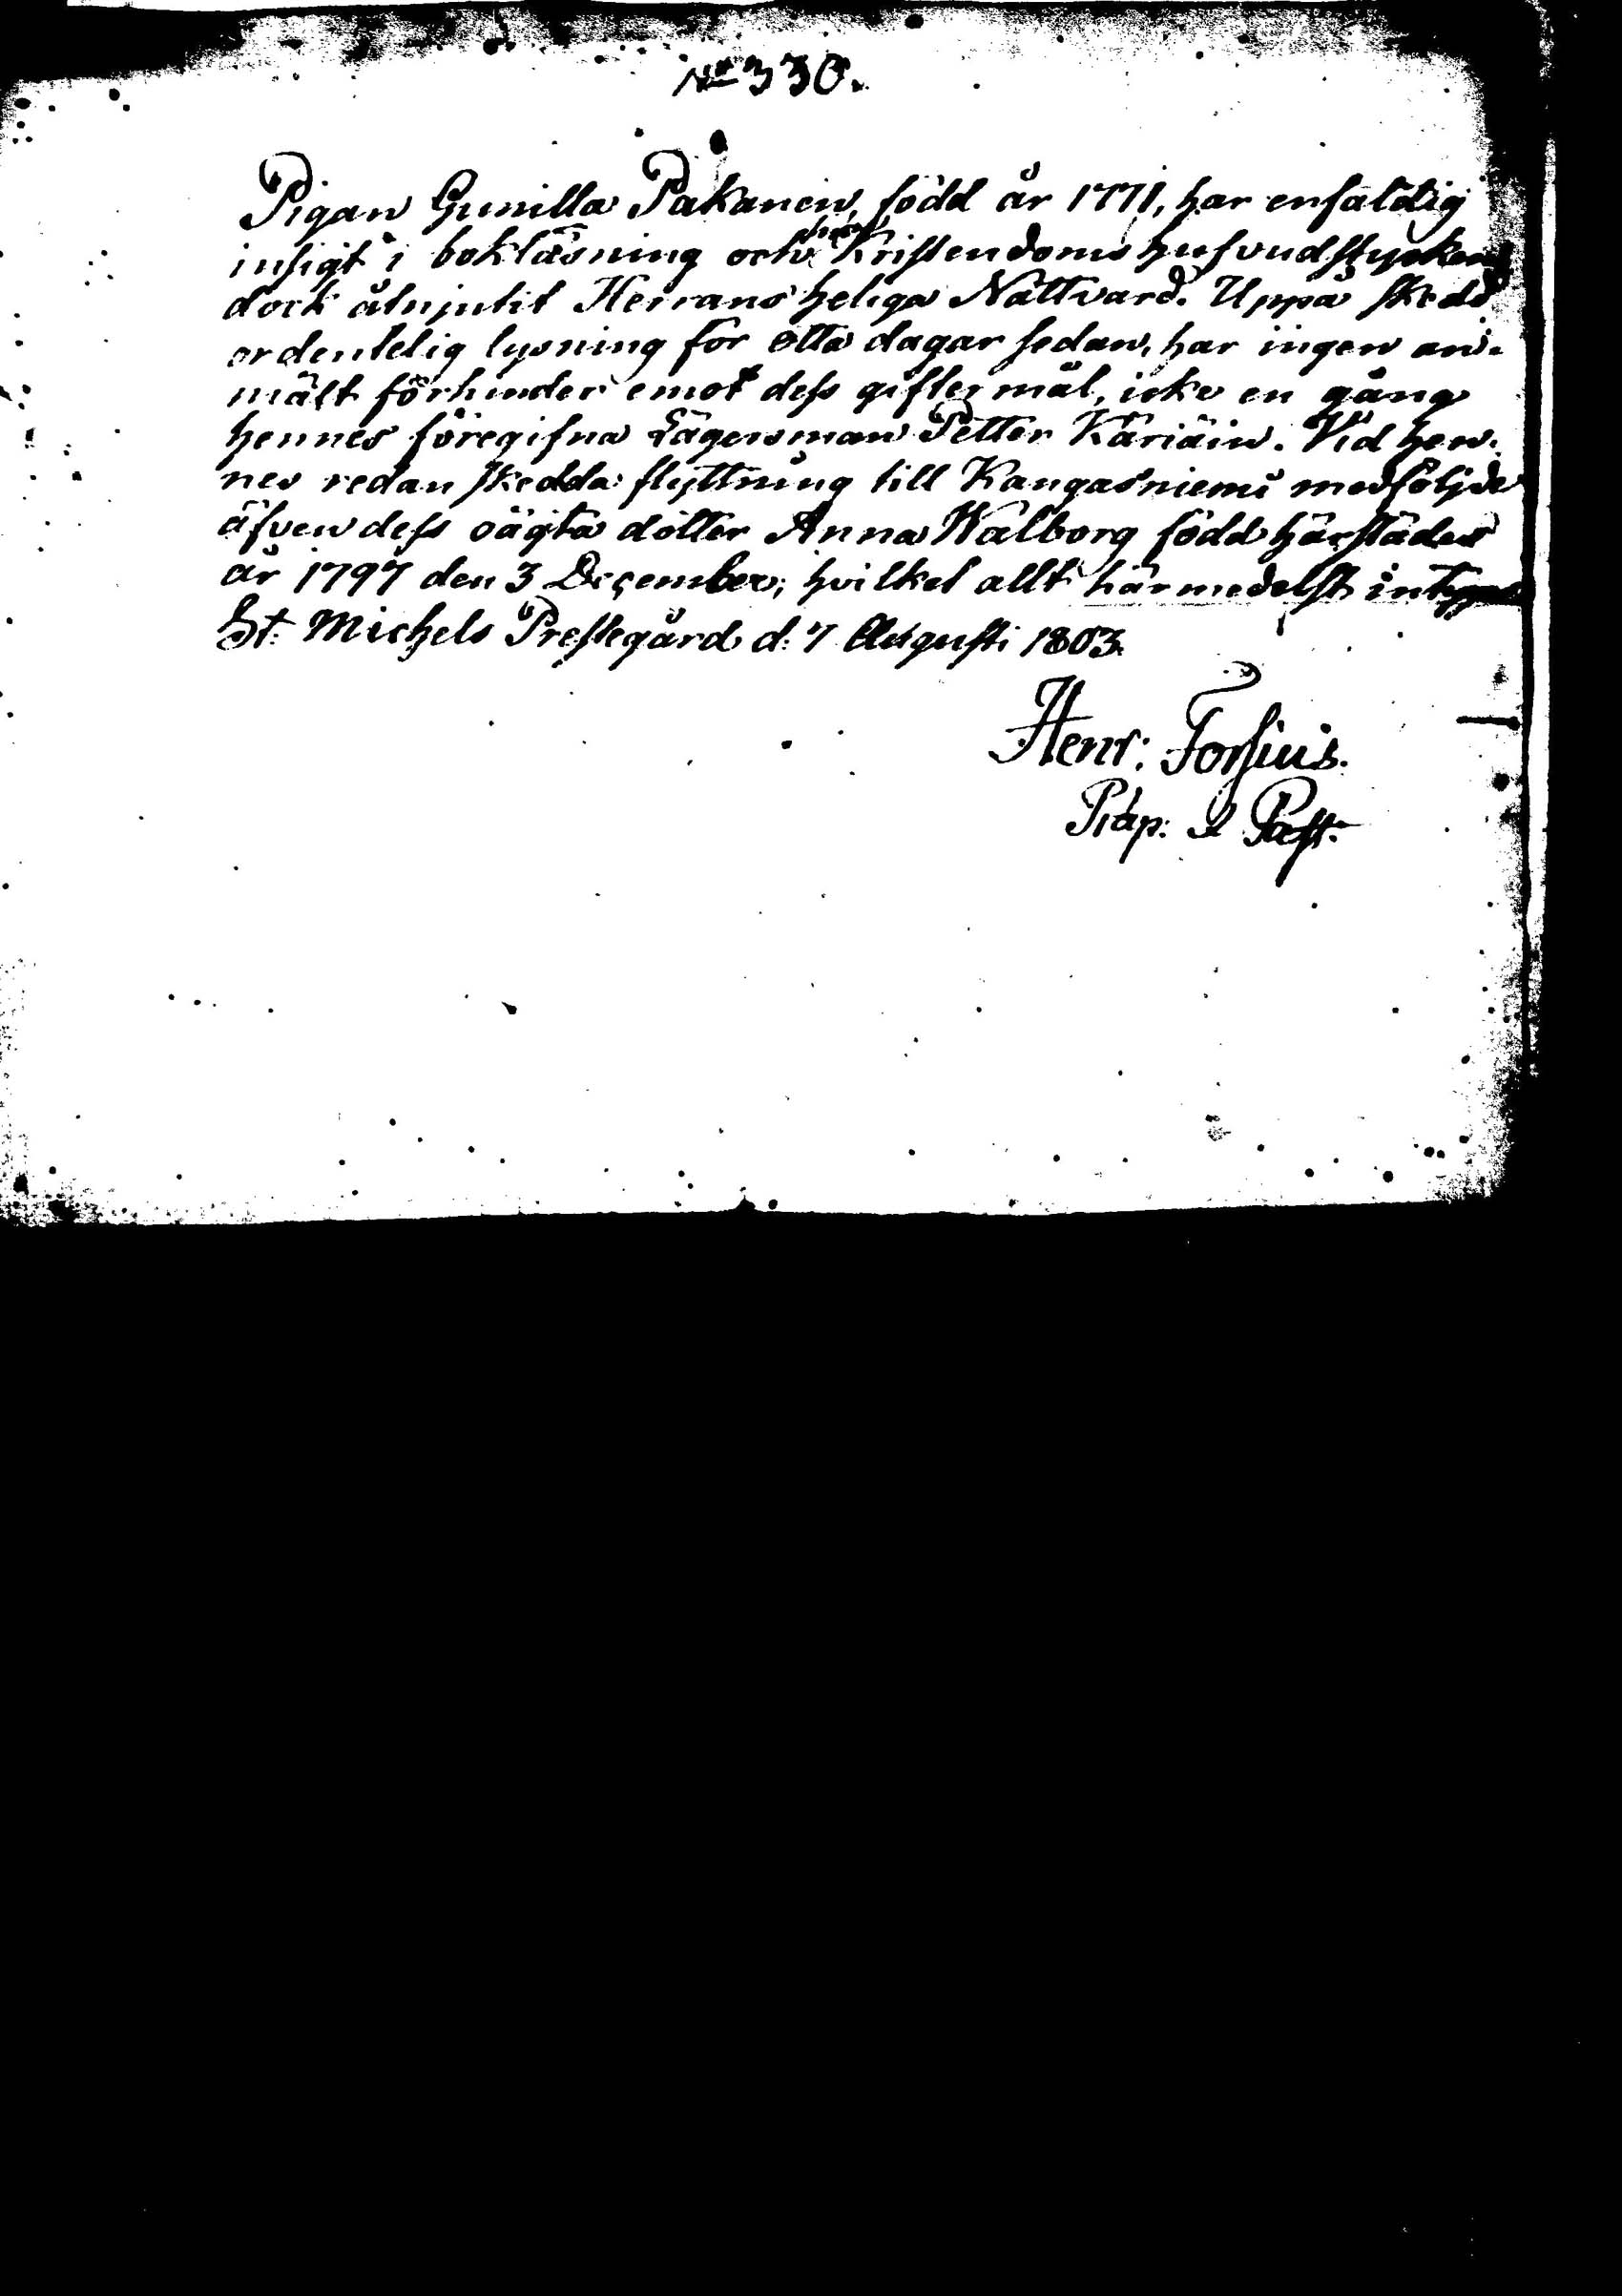 No 330.
Pigan Gunilla Pakanen, född år 1771, har enfaldig
insigt i bokläsning och Kristendoms hufvudstycken,
dock åtnjutit Herrans heliga Nattvard. Uppå skedd
ordentelig lysning för otta dagar sedan, har ingen an-
mält förhinder emot dess giftermål, icke en gång
hennes föregifna Lägersman Petter Käriäin. Vid hen-
nes redan skedda flyttning till Kangasniemi medföljde
äfven dess oägta dotter Anna Walborg född härstädes
år 1797 den 3 December; hvilket allt härmedelst intygas
St. Michels Prestegård d: 7 Augusti 1803.
Henr: Forsius.
Prap: & Past: